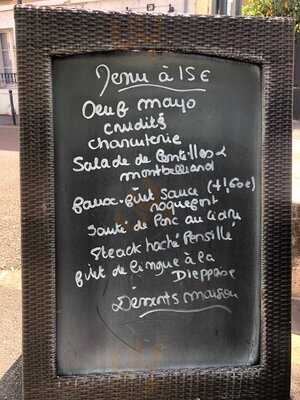 Menu à 15€
Oeuf mayo
crudités
charcuterie
Salade de lentilles &
montbelliard
faux-filet sauce (+1,60€)
roquefort
Sauté de Porc au
Steack haché Persillé
filet de lingue à la
Dieppoise
Desserts maison